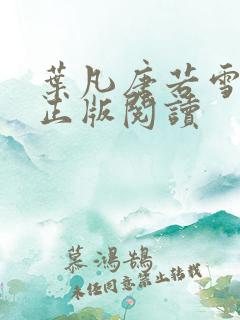 葉凡唐若雪
正版閱讀
慕鴻鵠
未经同意禁止转载